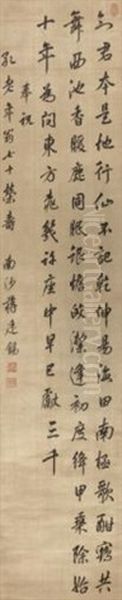 君本是地行仙不記乾坤易海田南極歌酣鶴共
舞西池香暖鹿同眠銀蟾皎潔逢初度絳甲乘除始
十年為問東方幾許座中早已獻三千
奉祝
孔老年翁七十榮壽
南沙蔣廷錫